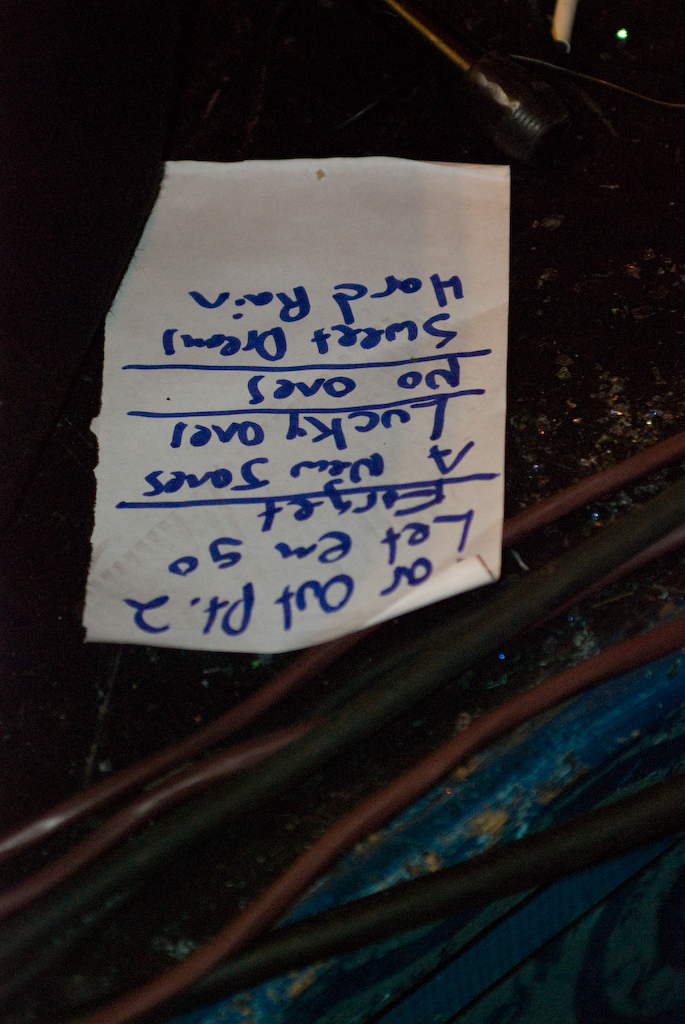 ar Out Pt. 2
Let em go
Forget
A New Jones
Lucky Ones
No ones
Sweet Dreams
Hard Rain